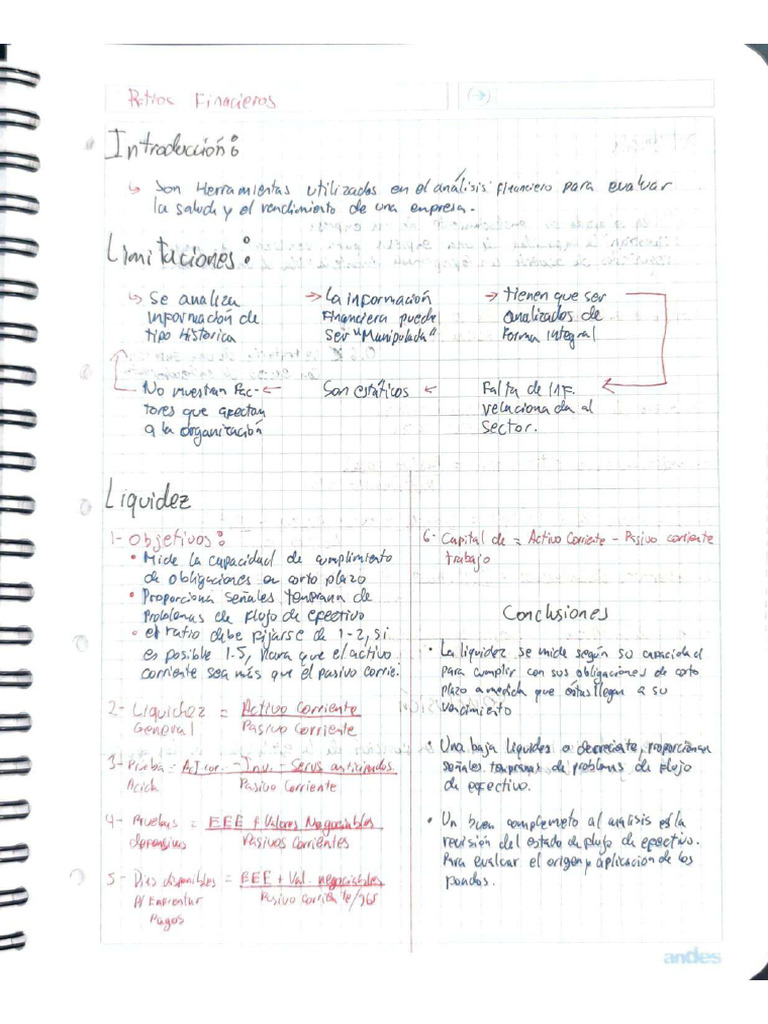 Ratios Financieros
Introducción:
↳ Son Herramientas utilizados en el análisis financiero para evaluar
la salud y el rendimiento de una empresa.
Limitaciones:
↳ Se analiza
información de
tipo Historica
→ La información
Financiera puede
ser "Manipulada"
→ tienen que ser
analizados de
Forma integral
Falta de INF.
relacionada al
Sector.
Son estáticos
No muestran Fac-
tores que afectan
a la organización
Liquidez
1- Objetivos:
• Mide la capacidad de cumplimiento
de obligaciones en corto plazo
• Proporciona señales temprana de
Problemas de flujo de efectivo
• el ratio debe fijarse de 1-2, si
es posible 1.5, para que el activo
corriente sea más que el pasivo corrie.
2- Liquidez = Activo Corriente
General Pasivo Corriente
3- Prueba = Act cor. - Inv. - Servs anticipados
Acida Pasivo Corriente
4- Pruebas = EEE + Valores Negociables
defensivas Pasivos Corrientes
5- Dias disponibles = EEE + Val. negociables
P/ Enfrentar Pasivo corriente/365
Pagos
6- Capital de = Activo Corriente - Pasivo corriente
trabajo
Conclusiones
• La liquidez se mide según su capacidad
para cumplir con sus obligaciones de corto
plazo a medida que éstas llegan a su
vencimiento
• Una baja liquides o decreciente, proporcionan
señales tempranas de problemas de flujo
de efectivo.
• Un buen complemeto al analisis es la
revisión del estado de flujo de efectivo.
Para evaluar el origen y aplicación de los
fondos.
andes